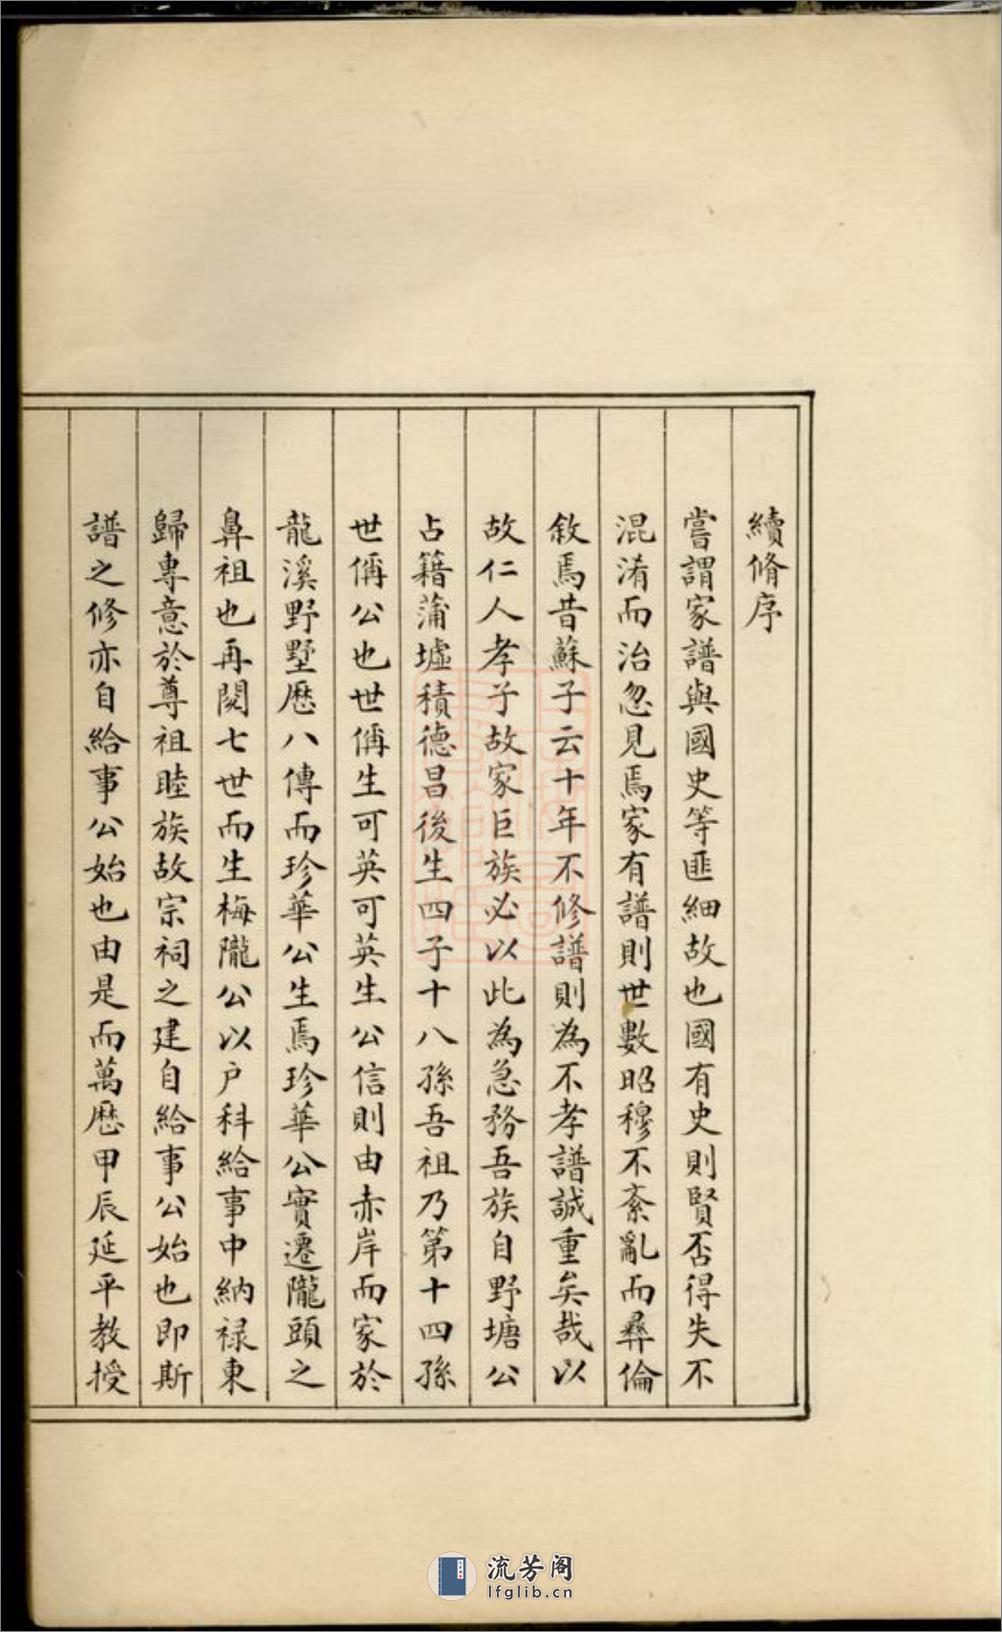 續脩序
嘗謂家譜與國史等匪細故也國有史則賢否得失不
混淆而治忽見焉家有譜則世數昭穆不紊亂而彝倫
敘焉昔蘇子云十年不修譜則為不孝譜誠重矣哉以
故仁人孝子故家巨族必以此為急務吾族自野塘公
占籍蒲墟積德昌後生四子十八孫吾祖乃第十四孫
世偁公也世偁生可英可英生公信則由赤岸而家於
龍溪野墅歷八傳而珍華公生焉珍華公實遷隴頭之
鼻祖也再閱七世而生梅隴公以户科給事中納祿東
歸專意於尊祖睦族故宗祠之建自給事公始也即斯
譜之修亦自給事公始也由是而萬歷甲辰延平教授
流芳阁
lfglib.cn